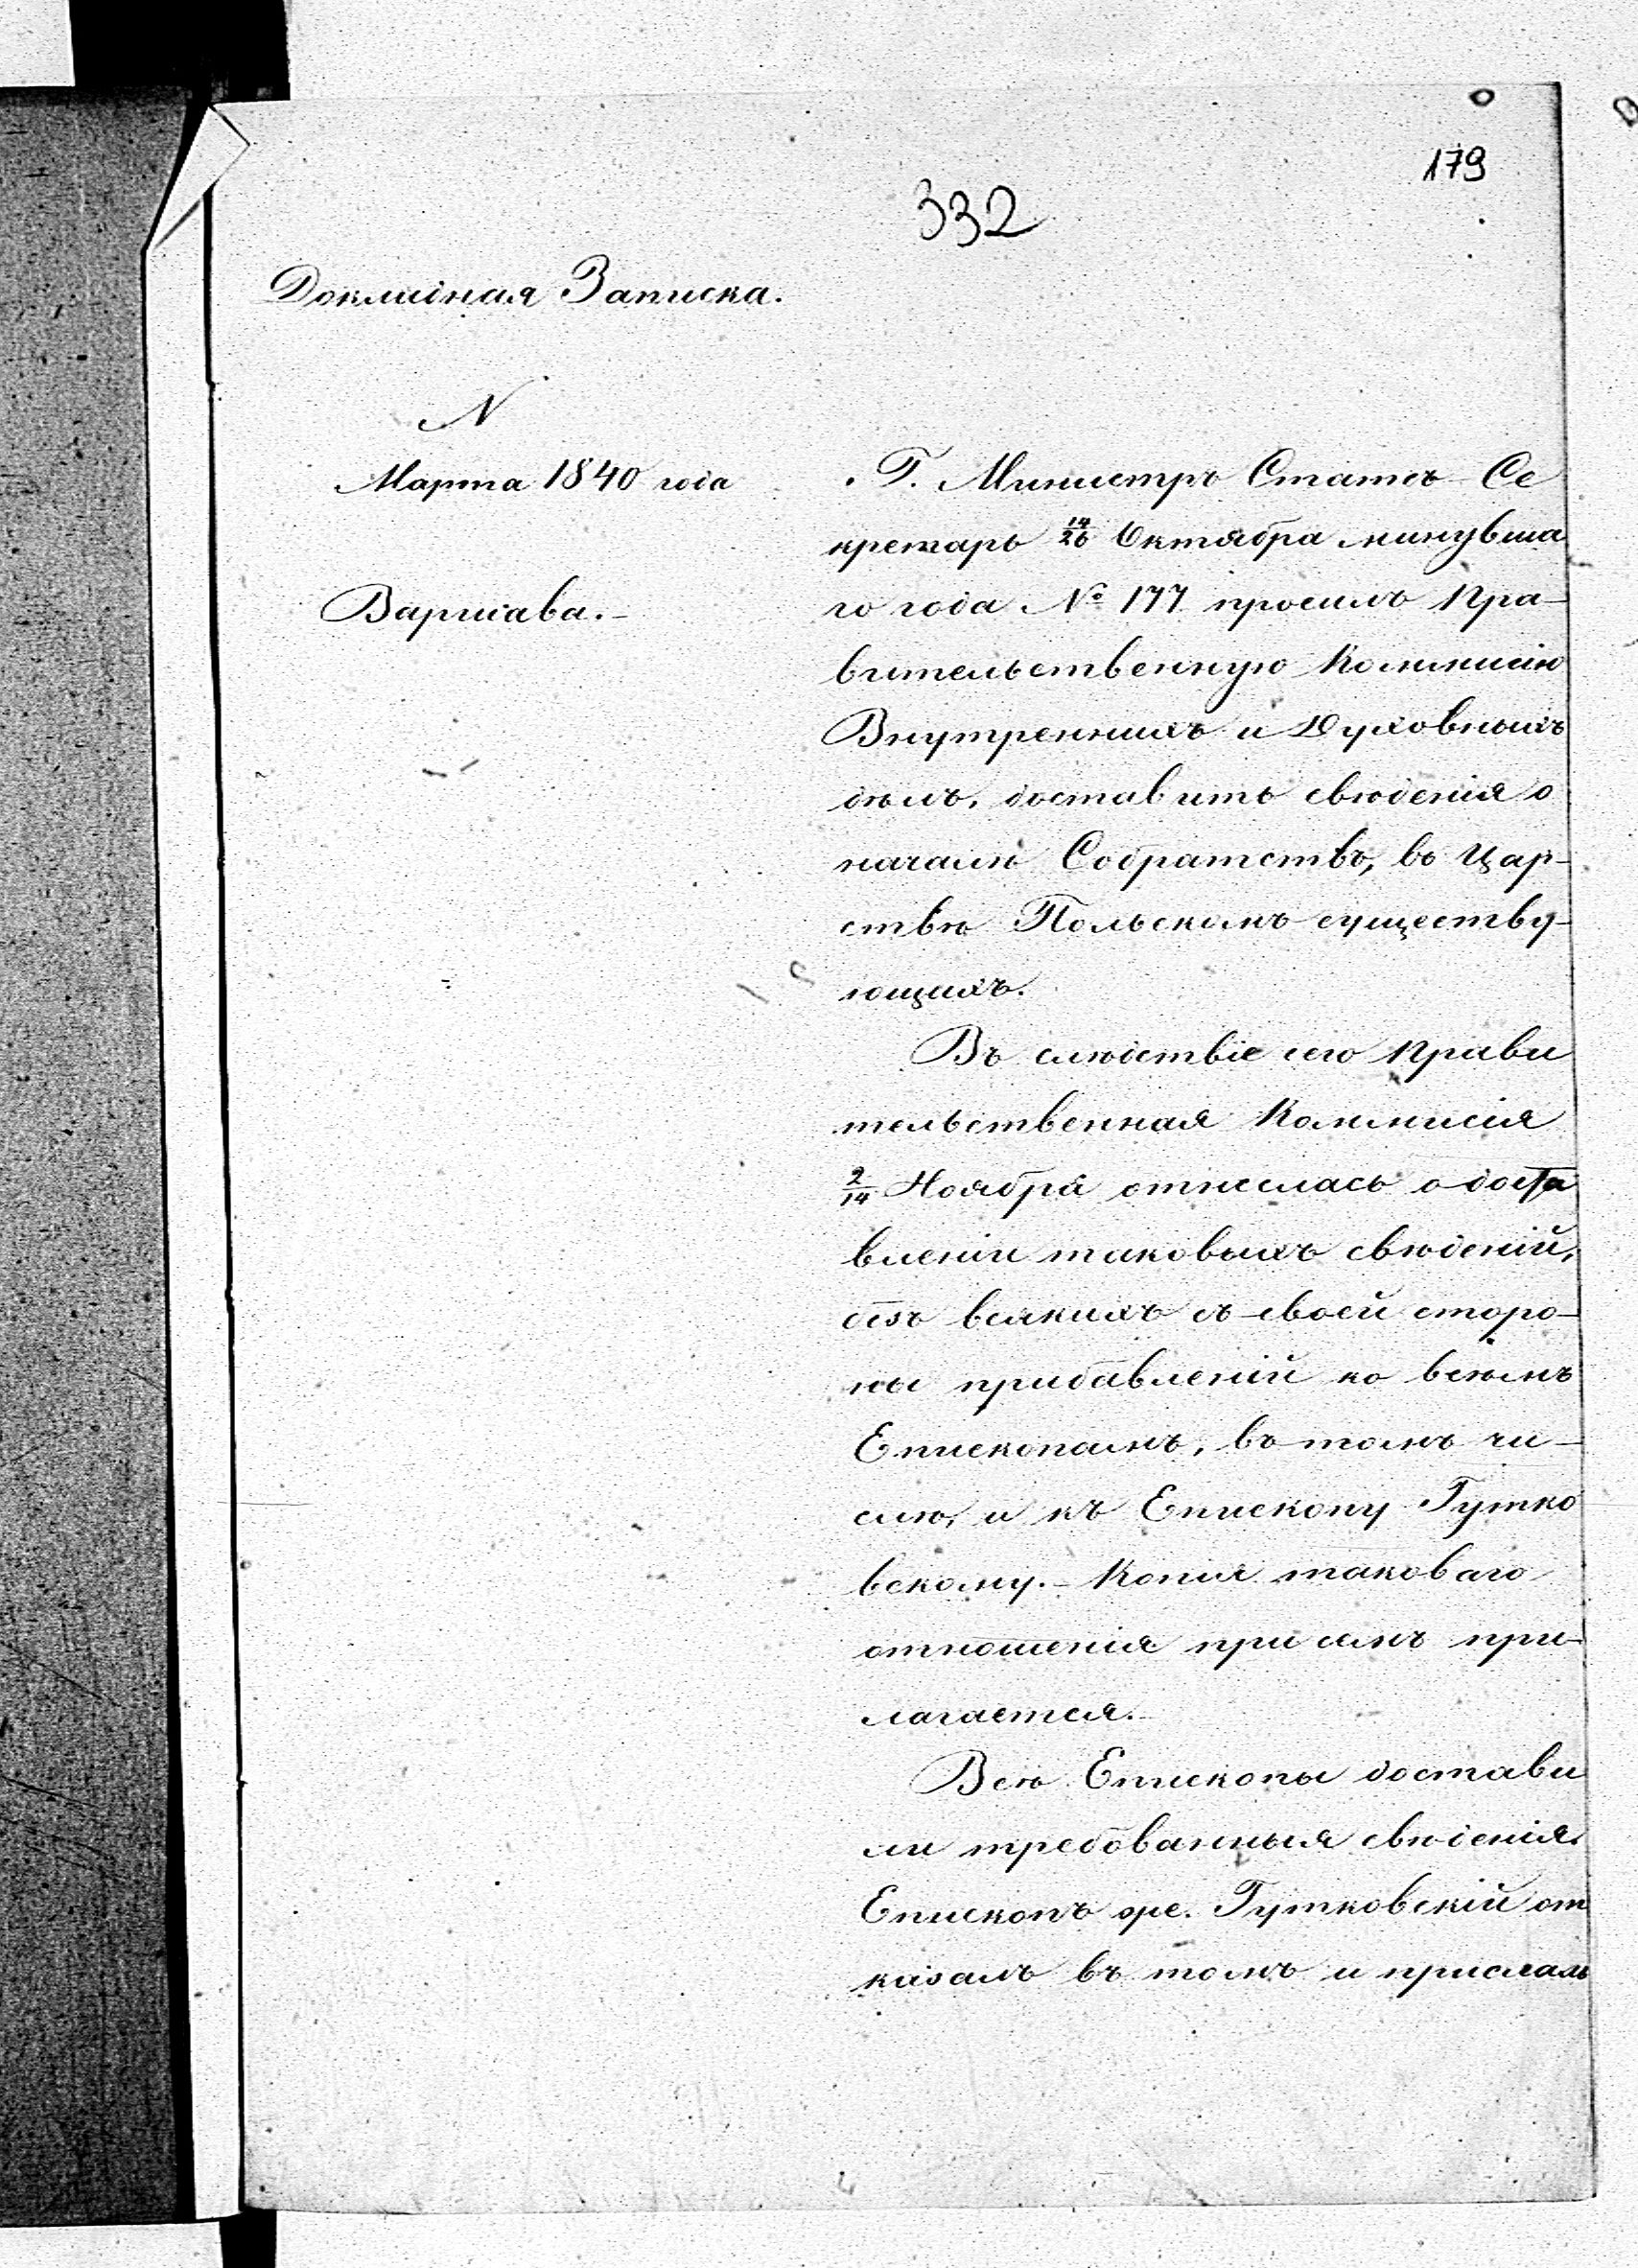 179
332
Докладная Записка.
N
Марта 1840 года
Варшава.-
Г. Министръ Статсъ Се
кретарь 14/26 Октября минувша
го года № 177 просилъ Пра-
вительственную Коммисію
Внутреннихъ и Духовныхъ
дѣлъ, доставить свѣденія о
началѣ Собратствъ, въ Цар-
ствѣ Польскомъ существу-
ющихъ.
Въ слѣдствіе сего Прави
тельственная Коммисія
2/14 Ноября отнеслась о доста
вленіи таковыхъ свѣденій,
безъ всякихъ съ своей сторо-
ны прибавленій ко всѣмъ
Епископамъ, въ томъ чи-
слѣ, и къ Епископу Гутко
вскому.- Копия таковаго
отношенія при семъ при-
лагается.-
Всѣ Епископы достави
ли требованныя свѣденія.
Епископъ же. Гутковскій от
казалъ въ томъ и прислалъ